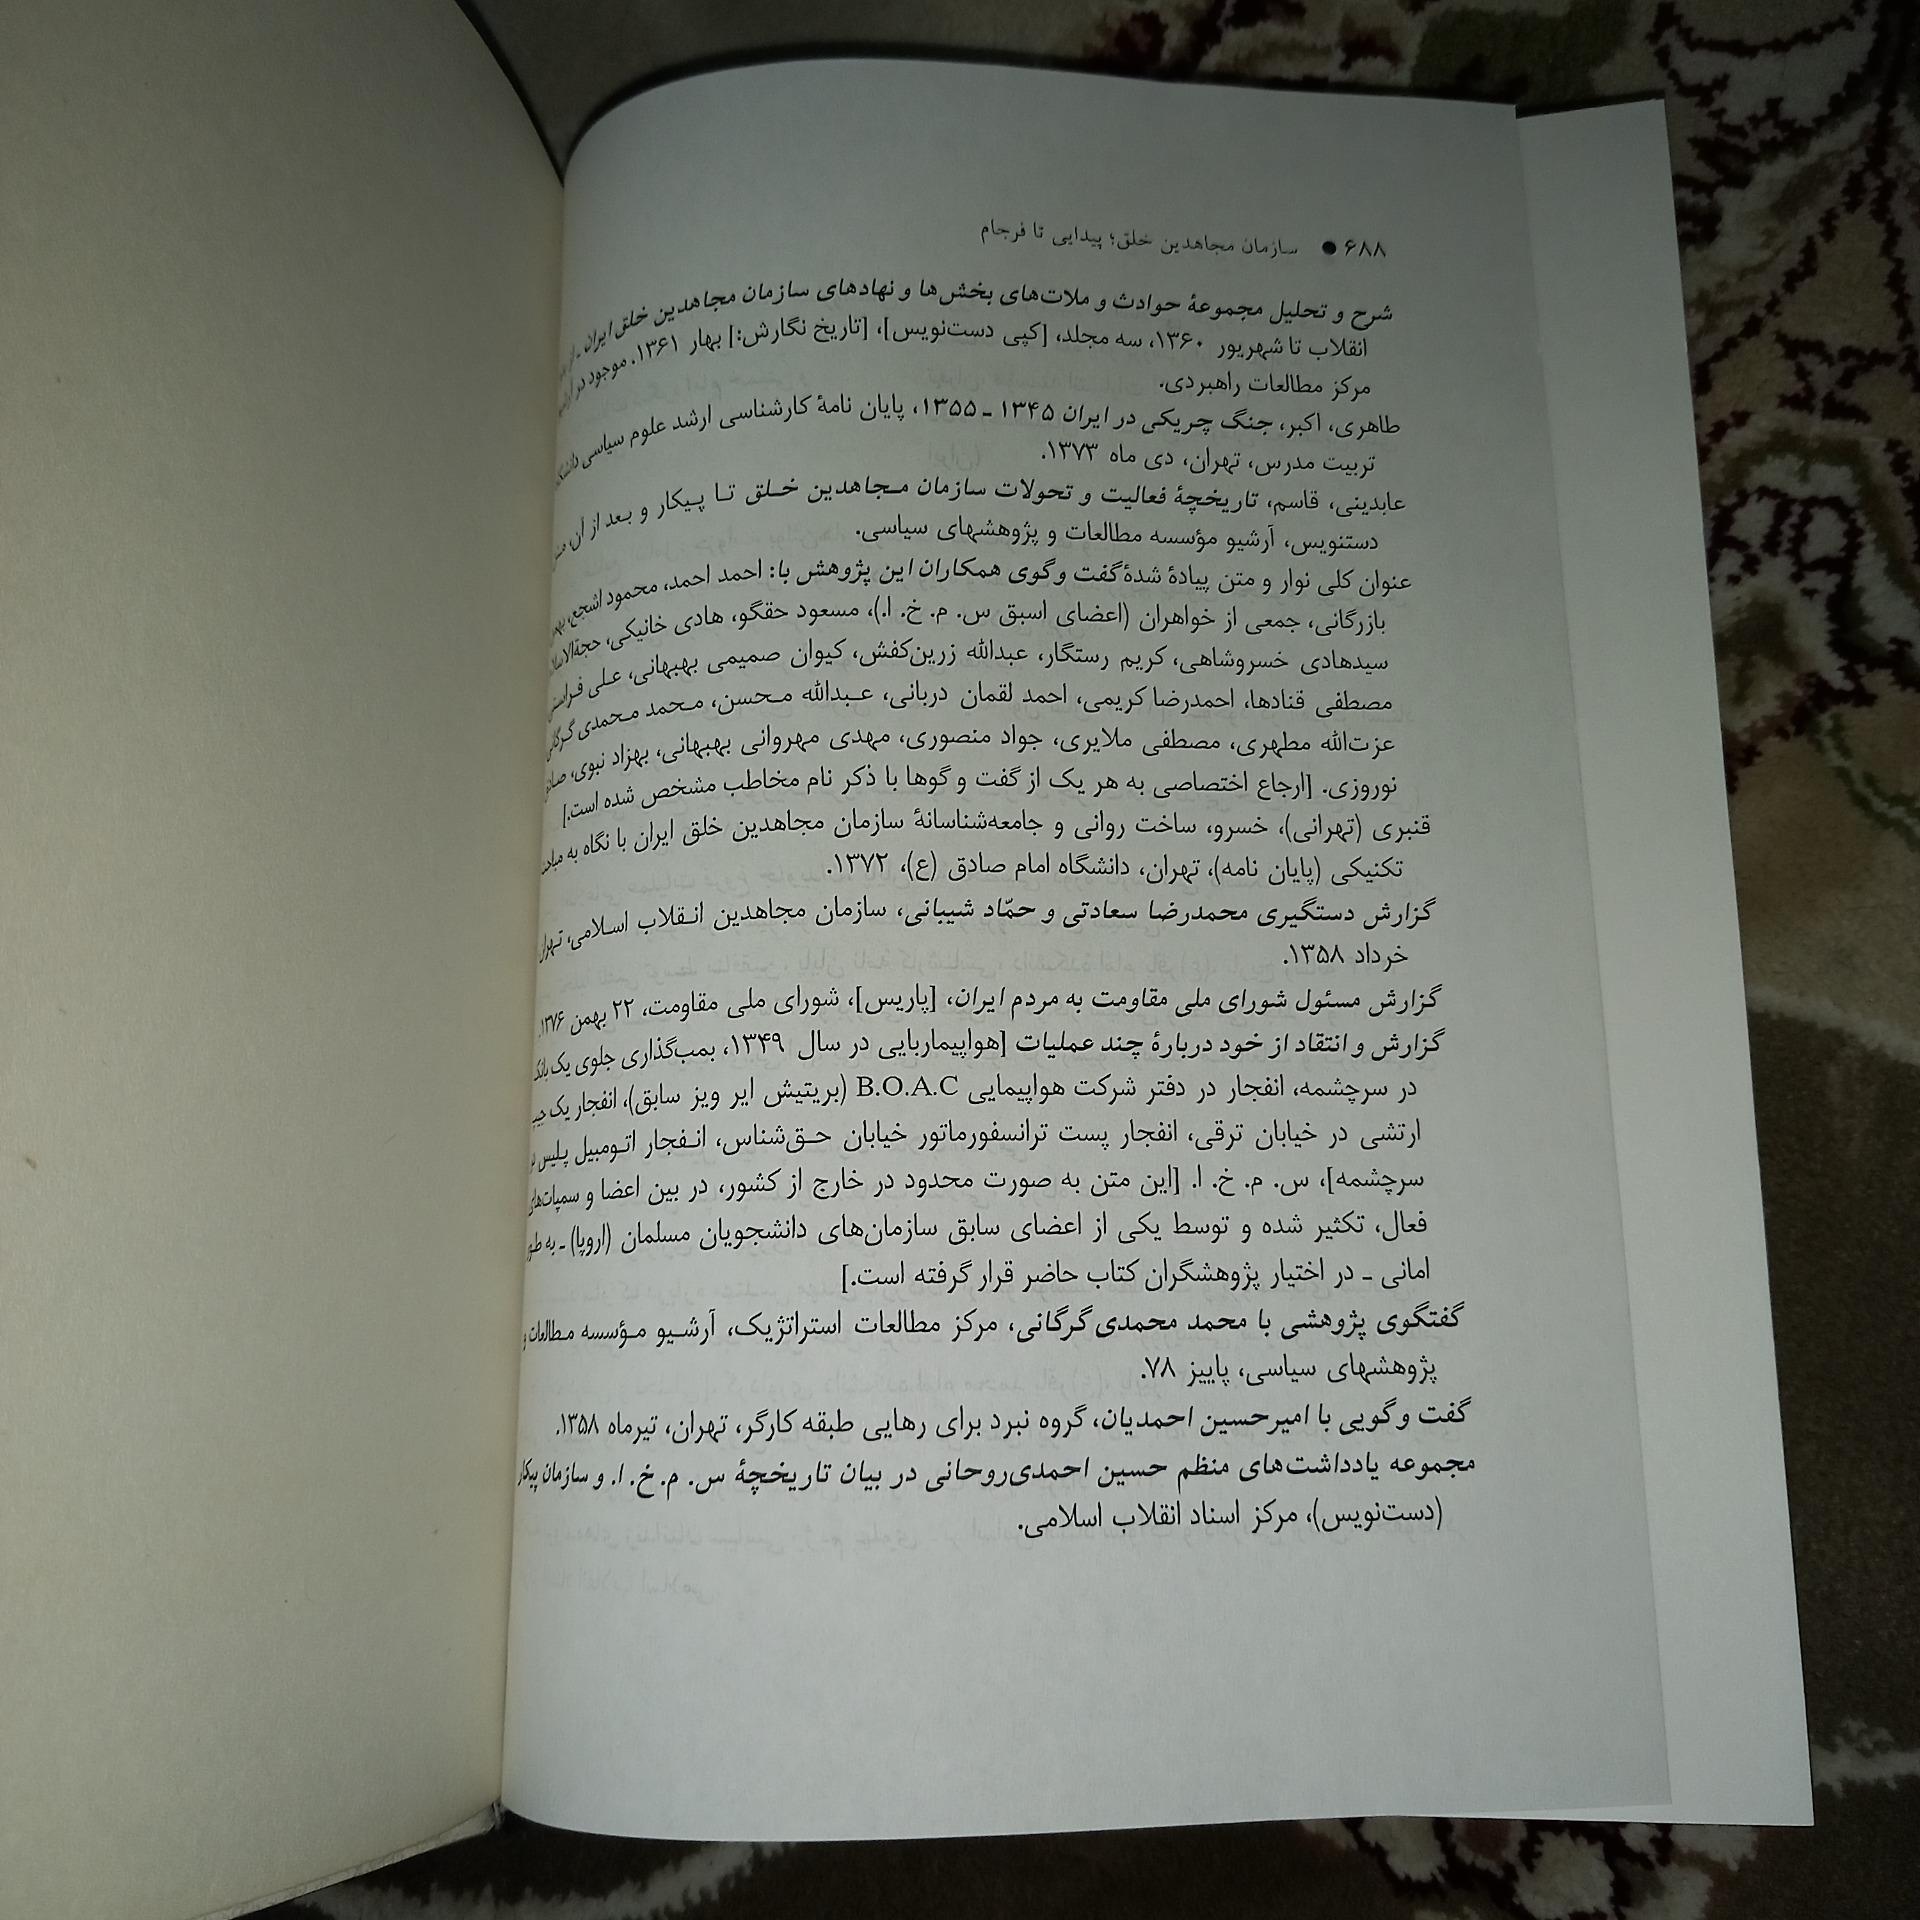 ۶۸۸ ● سازمان مجاهدین خلق؛ پیدایی تا فرجام
شرح و تحلیل مجموعهٔ حوادث و ملات‌های بخش‌ها و نهادهای سازمان مجاهدین خلق ایران ـ از
انقلاب تا شهریور ۱۳۶۰، سه مجلد، [کپی دست‌نویس]، [تاریخ نگارش:] بهار ۱۳۶۱. موجود در
مرکز مطالعات راهبردی.
طاهری، اکبر، جنگ چریکی در ایران ۱۳۴۵ ـ ۱۳۵۵، پایان نامهٔ کارشناسی ارشد علوم سیاسی
تربیت مدرس، تهران، دی ماه ۱۳۷۳.
عابدینی، قاسم، تاریخچهٔ فعالیت و تحولات سازمان مجاهدین خلق تا پیکار و بعد از آن،
دستنویس، آرشیو مؤسسه مطالعات و پژوهشهای سیاسی.
عنوان کلی نوار و متن پیادهٔ شدهٔ گفت وگوی همکاران این پژوهش با: احمد احمد، محمود اشجع،
بازرگانی، جمعی از خواهران (اعضای اسبق س. م. خ. ا.)، مسعود حقگو، هادی خانیکی،
سیدهادی خسروشاهی، کریم رستگار، عبدالله زرین‌کفش، کیوان صمیمی بهبهانی، علی
مصطفی قنادها، احمدرضا کریمی، احمد لقمان دربانی، عبدالله محسن، محمد محمدی گرگانی
عزت‌الله مطهری، مصطفی ملایری، جواد منصوری، مهدی مهروانی بهبهانی، بهزاد نبوی،
نوروزی. [ارجاع اختصاصی به هر یک از گفت و گوها با ذکر نام مخاطب مشخص شده است.]
قنبری (تهرانی)، خسرو، ساخت روانی و جامعه‌شناسانهٔ سازمان مجاهدین خلق ایران با نگاه به
تکنیکی (پایان نامه)، تهران، دانشگاه امام صادق (ع)، ۱۳۷۲.
گزارش دستگیری محمدرضا سعادتی و حمّاد شیبانی، سازمان مجاهدین انقلاب اسلامی، تهران
خرداد ۱۳۵۸.
گزارش مسئول شورای ملی مقاومت به مردم ایران، [پاریس]، شورای ملی مقاومت، ۲۲ بهمن ۱۳۷۶.
گزارش و انتقاد از خود دربارهٔ چند عملیات [هواپیماربایی در سال ۱۳۴۹، بمب‌گذاری جلوی یک بانک
در سرچشمه، انفجار در دفتر شرکت هواپیمایی B.O.A.C (بریتیش ایر ویز سابق)، انفجار یک جیپ
ارتشی در خیابان ترقی، انفجار پست ترانسفورماتور خیابان حق‌شناس، انفجار اتومبیل پلیس
سرچشمه]، س. م. خ. ا. [این متن به صورت محدود در خارج از کشور، در بین اعضا و سمپات‌های
فعال، تکثیر شده و توسط یکی از اعضای سابق سازمان‌های دانشجویان مسلمان (اروپا) ـ به طور
امانی ـ در اختیار پژوهشگران کتاب حاضر قرار گرفته است.]
گفتگوی پژوهشی با محمد محمدی گرگانی، مرکز مطالعات استراتژیک، آرشیو مؤسسه مطالعات و
پژوهشهای سیاسی، پاییز ۷۸.
گفت وگویی با امیرحسین احمدیان، گروه نبرد برای رهایی طبقه کارگر، تهران، تیرماه ۱۳۵۸.
مجموعه یادداشت‌های منظم حسین احمدی‌روحانی در بیان تاریخچهٔ س. م. خ. ا. و سازمان پیکار
(دست‌نویس)، مرکز اسناد انقلاب اسلامی.